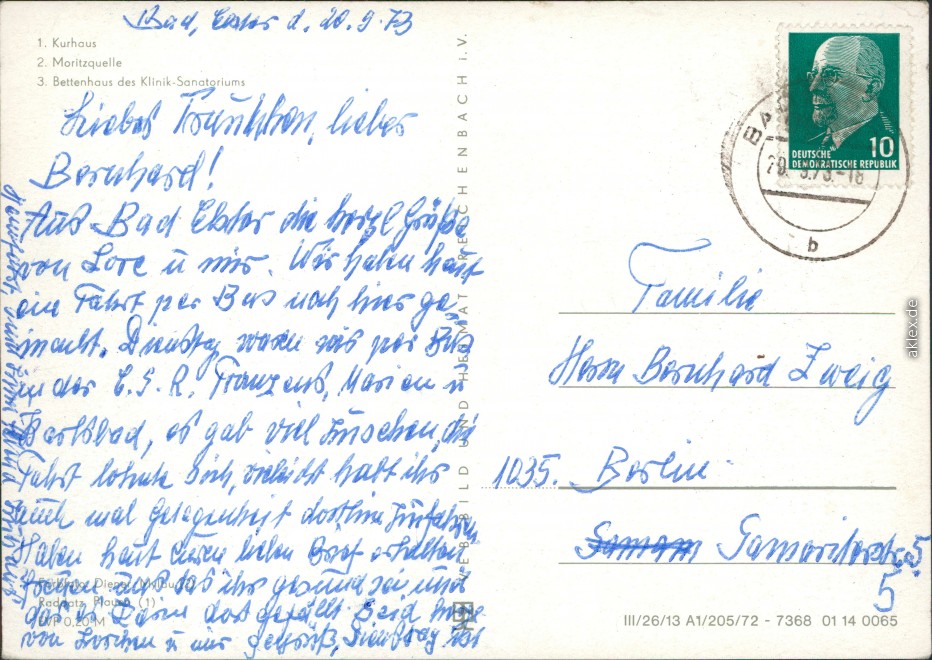 Bad, Elster d. 20.9.73
1. Kurhaus
2. Moritzquelle
3. Bettenhaus des Klinik-Sanatoriums
Liebes lieber
Bernhard!
Aus Bad Elster die herzl Grüße
von Lore u mir. Wir haben heut
eine Fahrt per Bus nach hier ge
macht. Dienstag waren wir per Bus
in der C.S.R. Franzens, Marien u
Karlsbad, es gab viel zu sehen, die
Fahrt lohnte sich, vielleicht habt ihr
auch mal Gelegenheit dorthin zu fahren
Haben heut euren lieben Brief erhalten
freuen uns das ihr gesund sei und
das es dort gefällt. Seid
von Lorchen u mir gegrüßt,
Farbfoto: Dienst
Radpatz, Plauen (1)
EVP 0,20 M
VEB BILD UND HEIMAT REICHENBACH i. V.
DEUTSCHE
DEMOKRATISCHE REPUBLIK
10
BA
20. 9.73.-18
b
Familie
Herrn Bernhard Zweig
1035. Berlin
Samariterstr. 5
5
III/26/13 A1/205/72 - 7368 01 14 0065
aklex.de